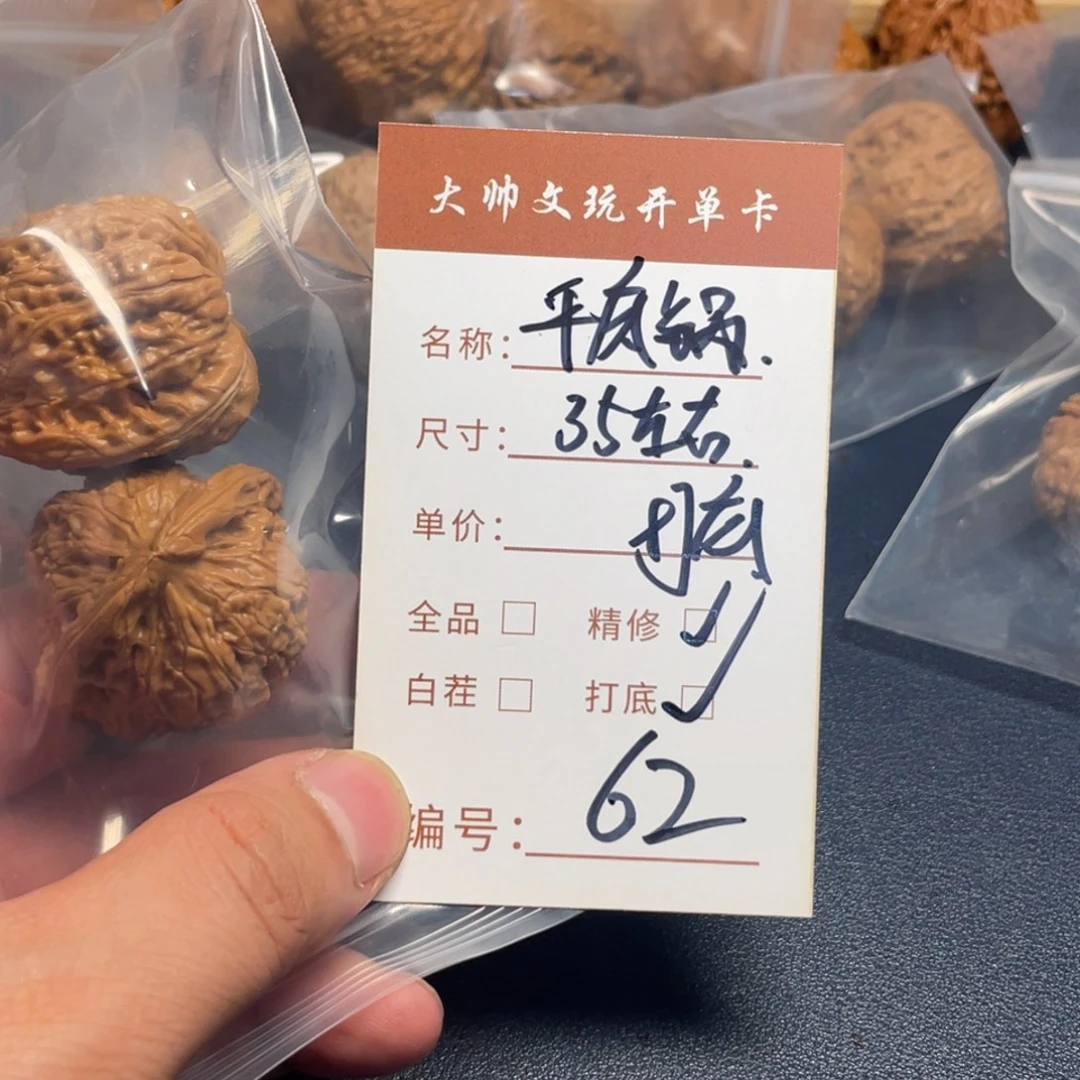 大帅文玩开单卡
名称: 平底锅.
尺寸: 35左右.
单价: 打底
全品 □ 精修 ☑
白茬 □ 打底 ☑
编号: 62